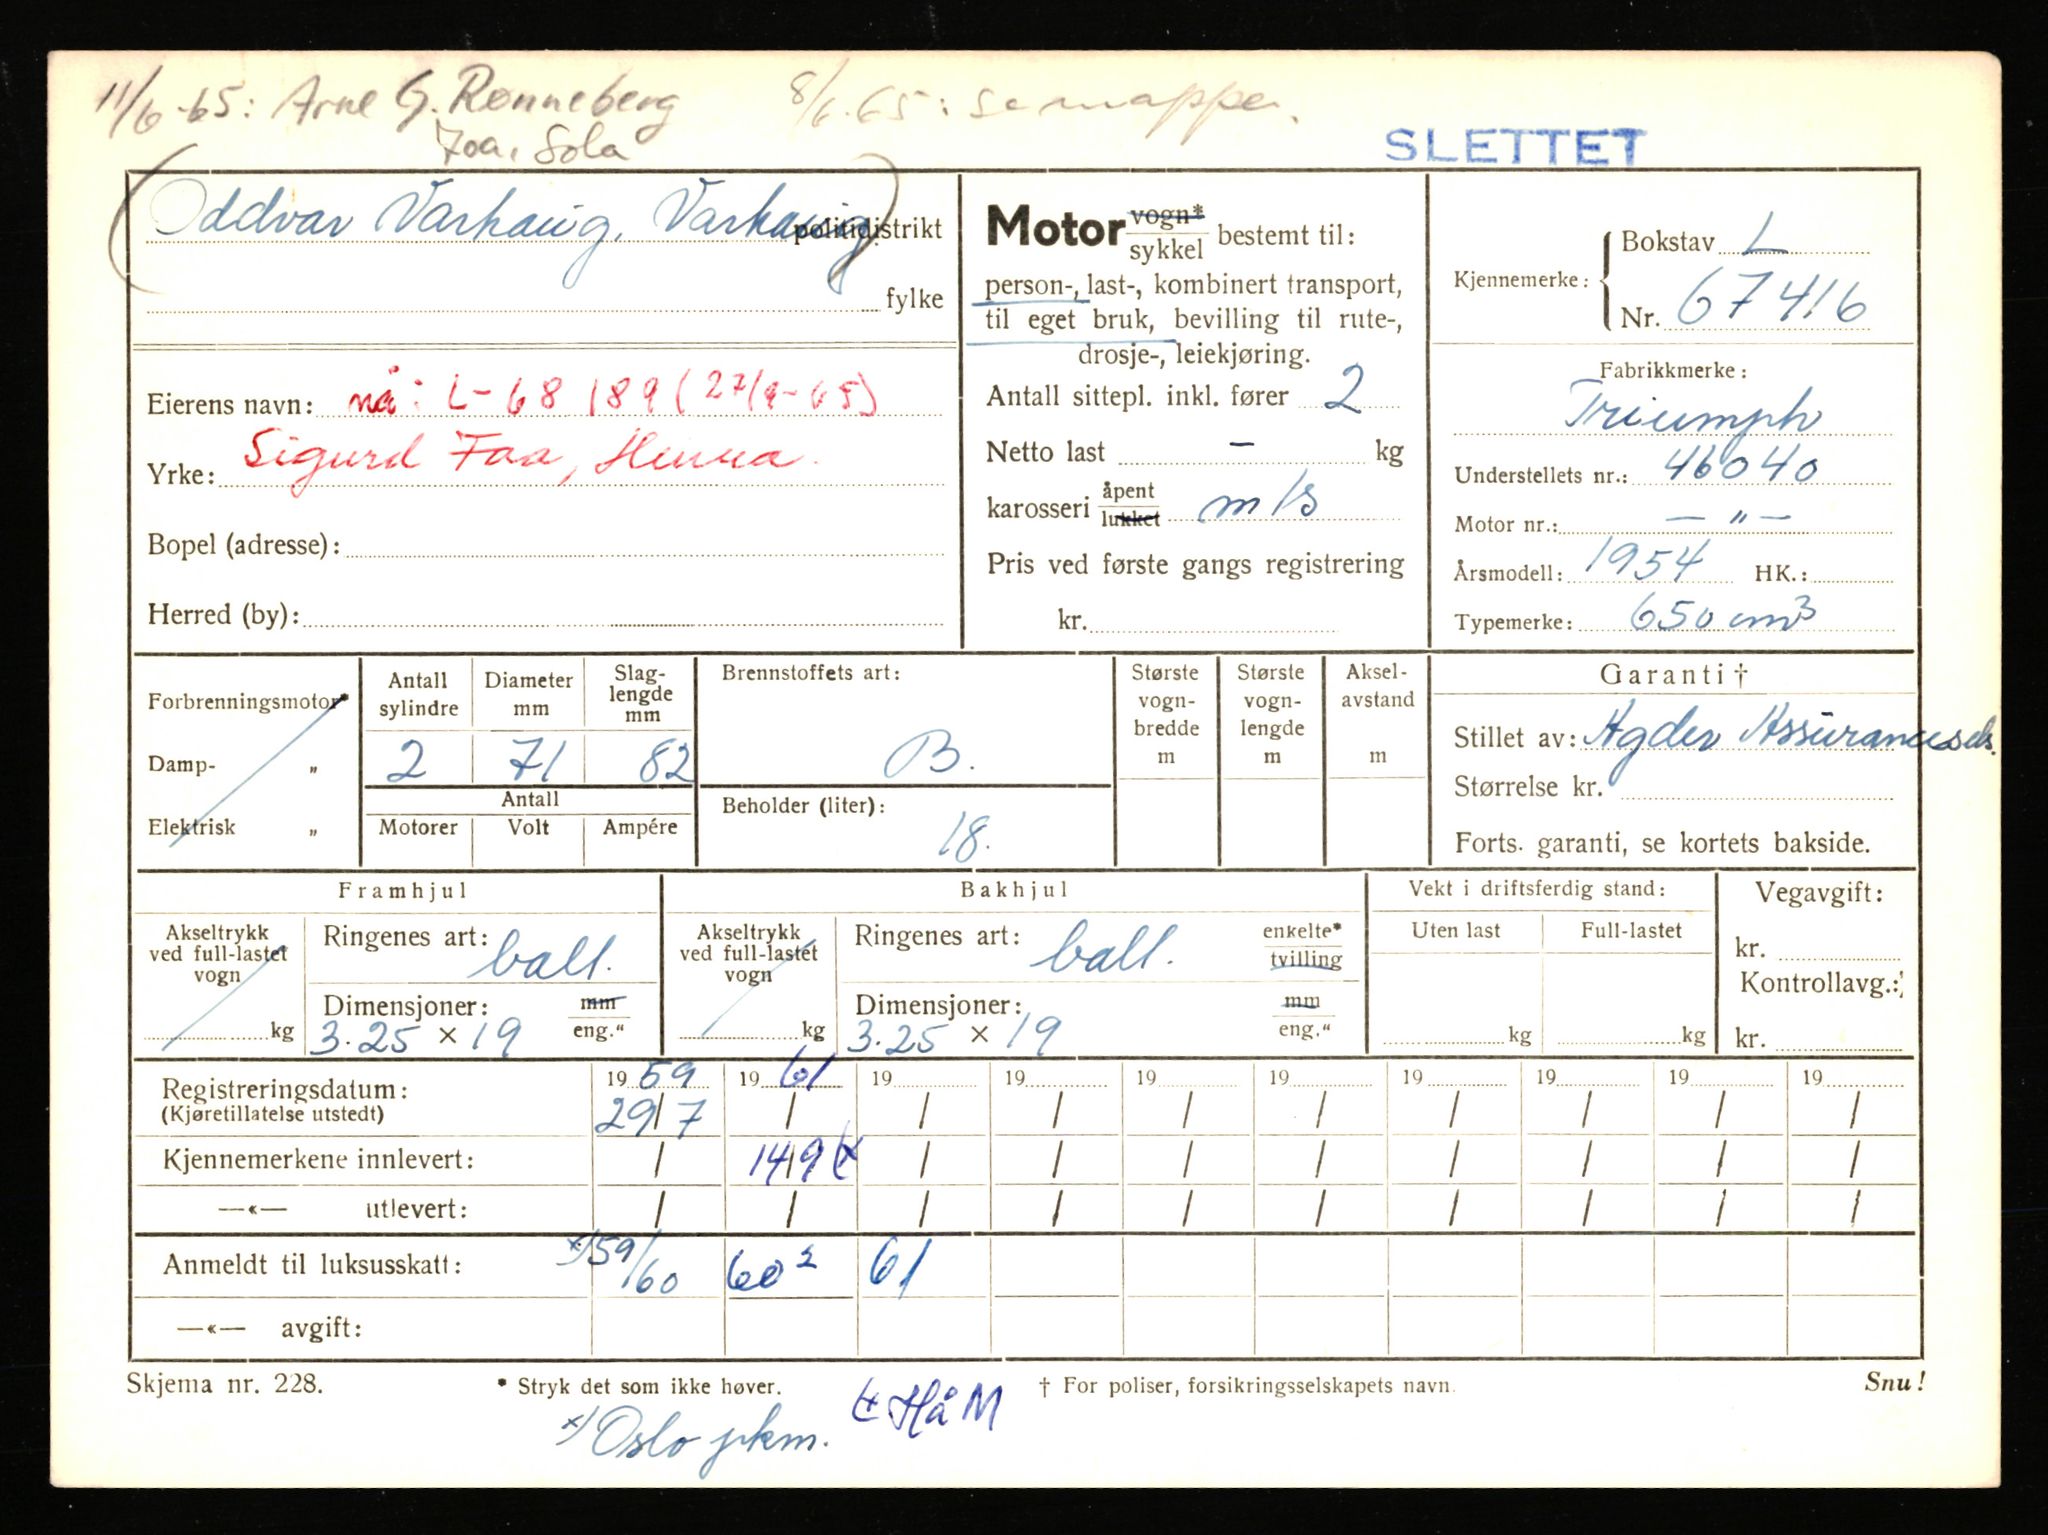 11/6-65: Arne G. Rønneberg 8/6.65: se mappe.
Joa, Sola
SLETTET
(Oddvar Varhaug, Varhaug)
politidistrikt
fylke
Motor vogn* / sykkel bestemt til:
person-, last-, kombinert transport,
til eget bruk, bevilling til rute-,
drosje-, leiekjøring.
Antall sittepl. inkl. fører 2
Netto last - kg
karosseri åpent / lukket m/s
Pris ved første gangs registrering
kr.
Kjennemerke: Bokstav L
Nr. 67416
Fabrikkmerke:
Triumph
Understellets nr.: 46040
Motor nr.: — " —
Årsmodell: 1954 HK.:
Typemerke: 650 cm3
Eierens navn: nå: L-68189 (27/9-65)
Yrke: Sigurd Foa, Hinna.
Bopel (adresse):
Herred (by):
Forbrenningsmotor*
Damp- „
Elektrisk „
Antall sylindre 2
Diameter mm 71
Slaglengde mm 82
Antall
Motorer Volt Ampére
Brennstoffets art:
B.
Beholder (liter):
18.
Største vognbredde m
Største vognlengde m
Akselavstand m
Garanti †
Stillet av: Agder Assuransesels.
Størrelse kr.
Forts. garanti, se kortets bakside.
Framhjul
Akseltrykk ved full-lastet vogn kg
Ringenes art: ball.
Dimensjoner: mm / eng."
3.25 × 19
Bakhjul
Akseltrykk ved full-lastet vogn kg
Ringenes art: ball. enkelte* / tvilling
Dimensjoner: mm / eng."
3.25 × 19
Vekt i driftsferdig stand:
Uten last Full-lastet
kg kg
Vegavgift:
kr.
Kontrollavg.:
kr.
Registreringsdatum: 19 59 19 61 19 19 19 19 19 19 19 19
(Kjøretillatelse utstedt) 29/7 / / / / / / / / /
Kjennemerkene innlevert: / 14/9 / / / / / / / /
—«— utlevert: / / / / / / / / / /
Anmeldt til luksusskatt: x) 59/60 60² 61
—«— avgift:
Skjema nr. 228. * Stryk det som ikke høver. † For poliser, forsikringsselskapets navn. Snu!
± Hå M
x) Oslo pkm.